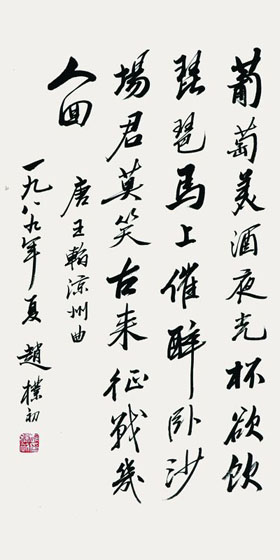 葡萄美酒夜光杯欲飲
琵琶馬上催醉卧沙
場君莫笑古来征戰幾
人回
唐王翰涼州曲
一九八九年夏趙樸初